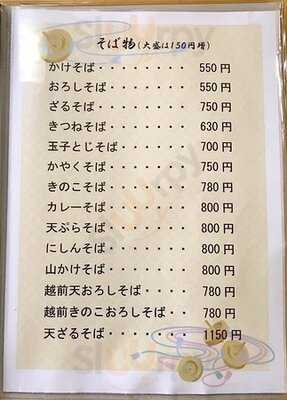 そば物(大盛は150円増)
かけそば・・・・・・・・550円
おろしそば・・・・・・・550円
ざるそば・・・・・・・・750円
きつねそば・・・・・・・630円
玉子とじそば・・・・・・700円
かやくそば・・・・・・・750円
きのこそば・・・・・・・780円
カレーそば・・・・・・・800円
天ぷらそば・・・・・・・800円
にしんそば・・・・・・・800円
山かけそば・・・・・・・800円
越前天おろしそば・・・・780円
越前きのこおろしそば・・780円
天ざるそば・・・・・・・1150円